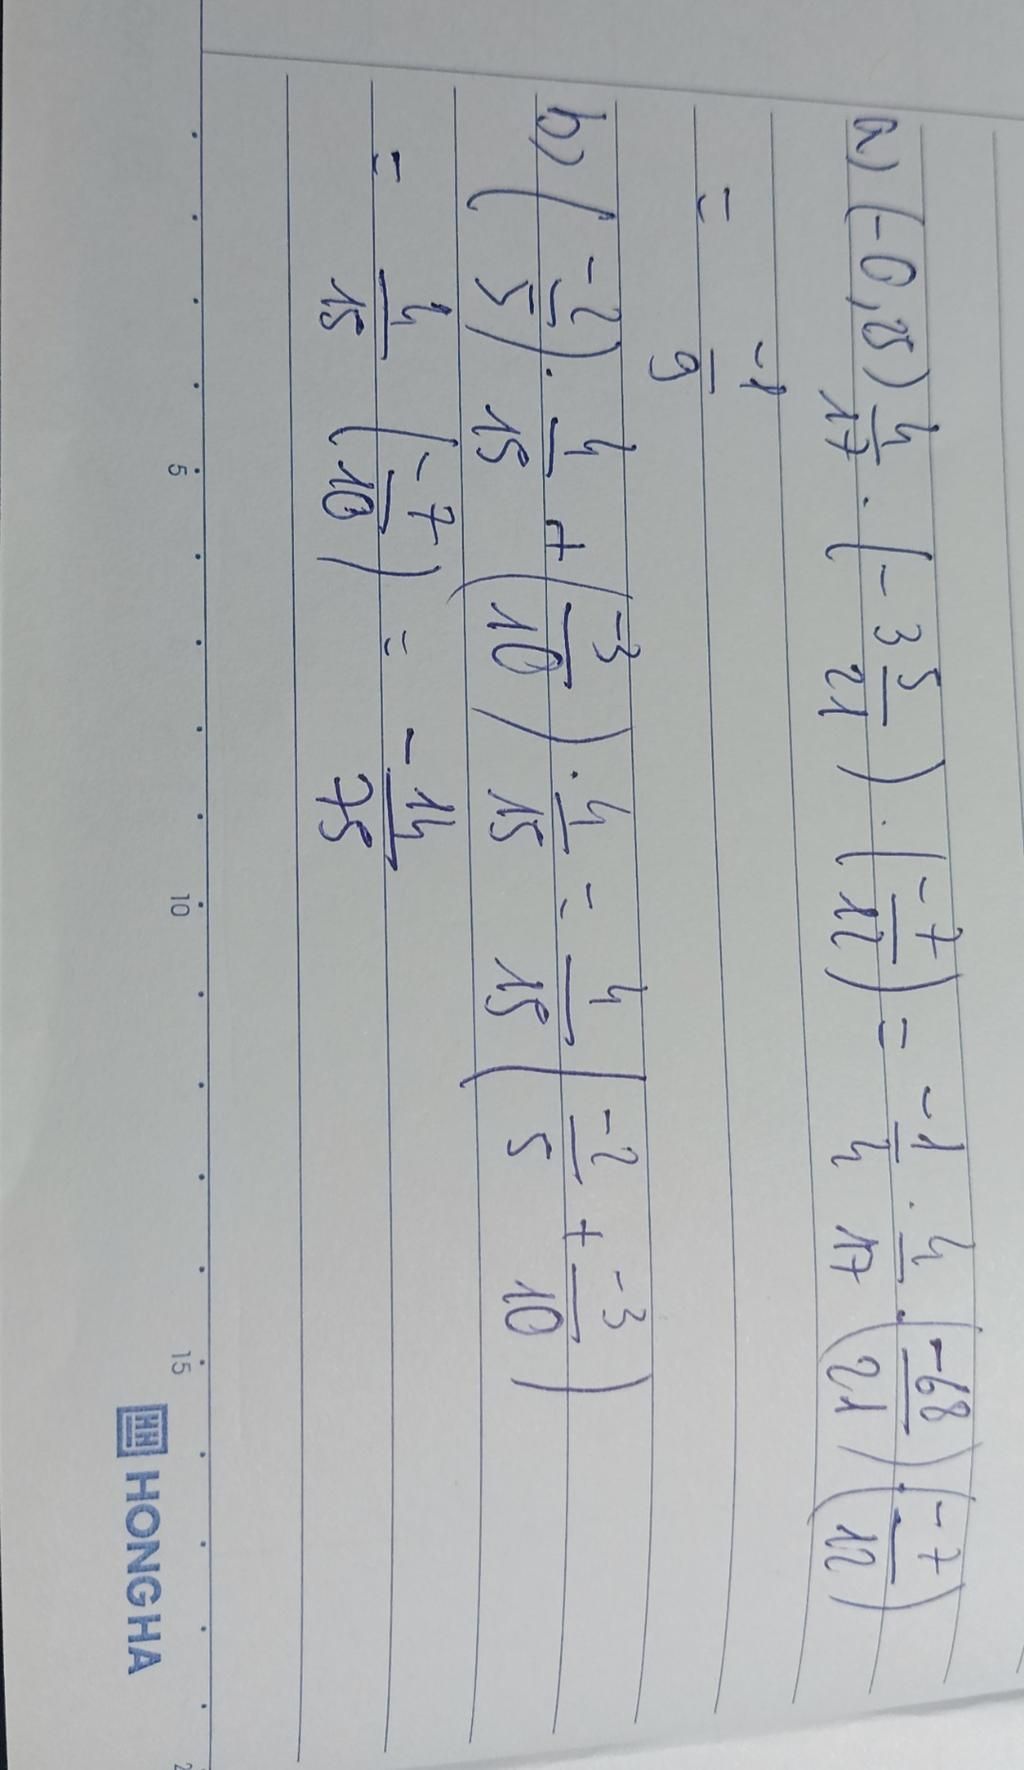 a) (-0,25) 4/17 . (-3 5/21) . (-7/12) = -1/4 . 4/17 . (-68/21) . (-7/12)
= -1/9
b) (-2/5) . 4/15 + (-3/10) . 4/15 = 4/15 (-2/5 + -3/10)
= 4/15 (-7/10) = -14/75
5 10 15 2
HH HONG HA